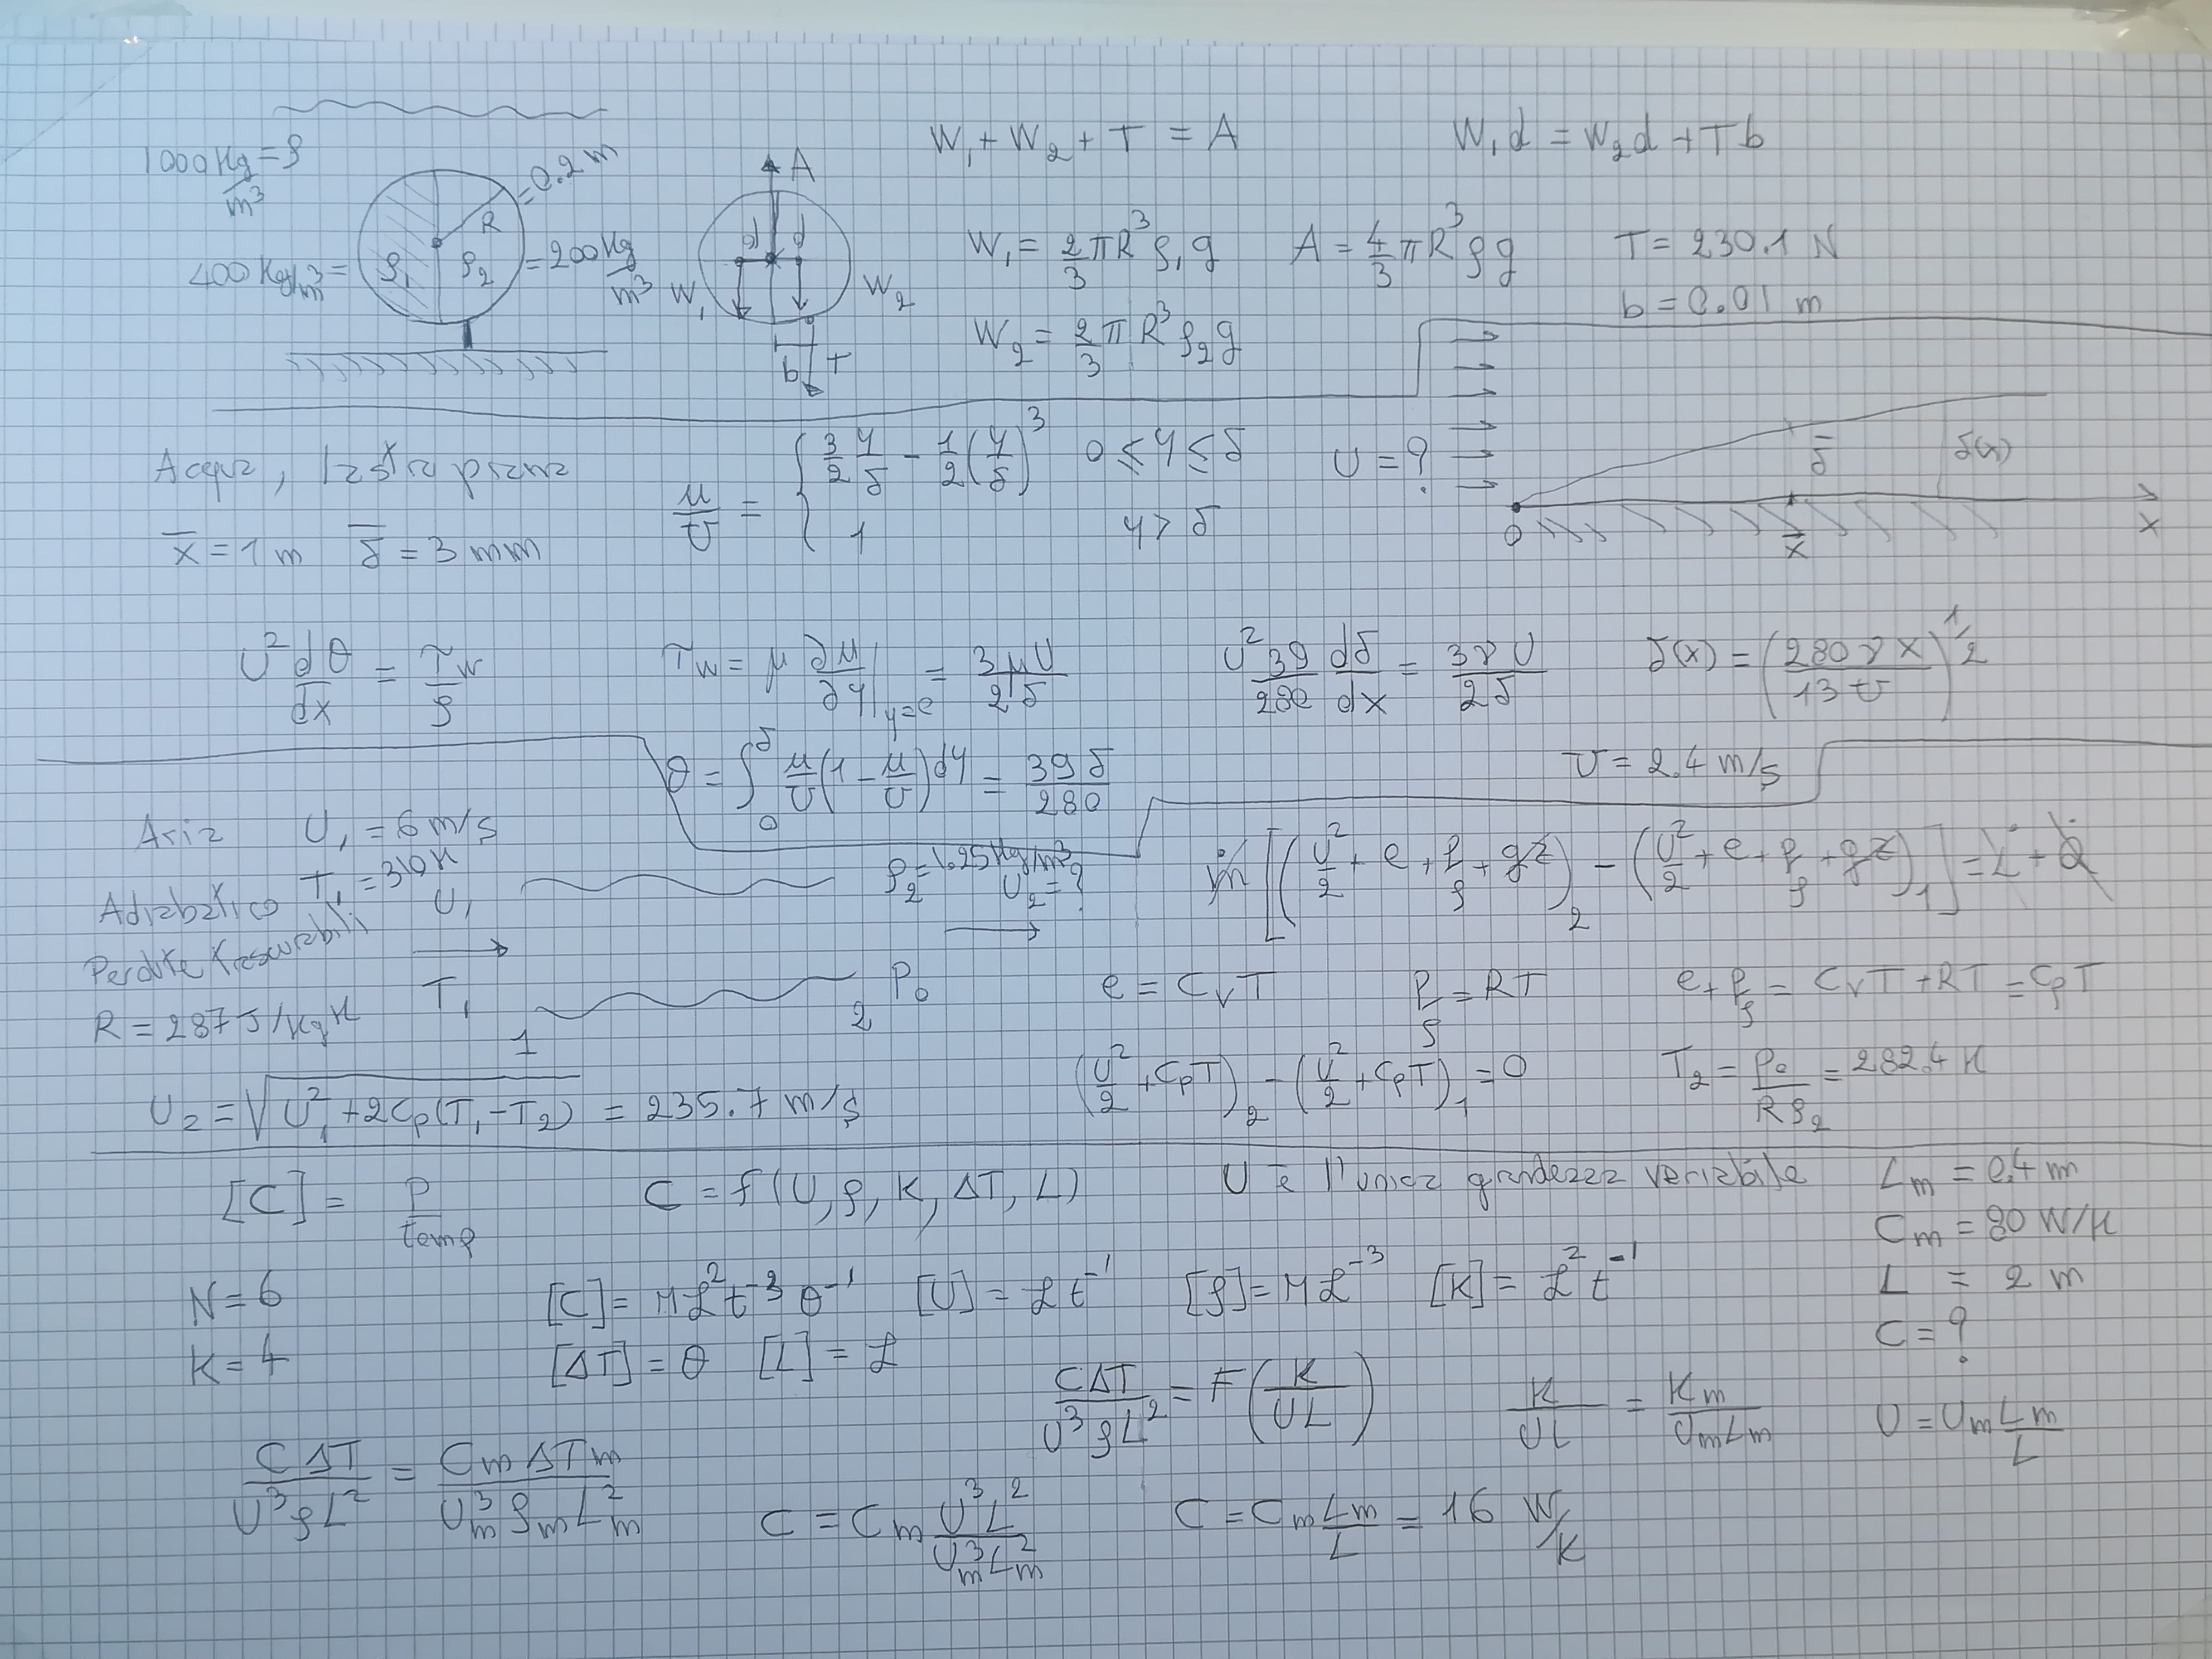 1000 Kg/m³ = ρ
R = 0.2 m
400 Kg/m³ = ρ₁
ρ₂ = 200 Kg/m³
A
d d
W₁ W₂
b T
W₁ + W₂ + T = A
W₁d = W₂d + Tb
W₁ = 2/3 πR³ρ₁g
A = 4/3 πR³ρg
T = 230.1 N
W₂ = 2/3 πR³ρ₂g
b = 0.01 m
Acqua, lastra piana
x̄ = 1 m δ̄ = 3 mm
u/U = { 3/2 y/δ - 1/2 (y/δ)³ 0 ≤ y ≤ δ
1 y > δ
U = ?
δ̄ δ(x)
0 x̄ x
U² dθ/dx = τw/ρ
τw = μ ∂u/∂y|y=0 = 3μU/2δ
U² 39/280 dδ/dx = 3νU/2δ
δ(x) = (280νx/13U)^1/2
θ = ∫₀^δ u/U (1 - u/U) dy = 39δ/280
U = 2.4 m/s
Aria U₁ = 6 m/s
T₁ = 310 K
Adiabatico
Perdite trascurabili
R = 287 J/KgK
U₁
T₁
1
ρ₂ = 1.25 Kg/m³
U₂ = ?
P₀
2
ṁ[(U²/2 + e + p/ρ + gz)₂ - (U²/2 + e + p/ρ + gz)₁] = L̇ + Q̇
e = CvT
p/ρ = RT
e + p/ρ = CvT + RT = CpT
U₂ = √(U₁² + 2Cp(T₁ - T₂)) = 235.7 m/s
(U²/2 + CpT)₂ - (U²/2 + CpT)₁ = 0
T₂ = P₀/Rρ₂ = 282.4 K
[C] = P/temp
C = f(U, ρ, K, ΔT, L)
U è l'unica grandezza variabile
Lm = 0.4 m
Cm = 80 W/K
L = 2 m
C = ?
N = 6
[C] = ML²t⁻³θ⁻¹ [U] = Lt⁻¹ [ρ] = ML⁻³ [K] = L²t⁻¹
K = 4
[ΔT] = θ [L] = L
CΔT/U³ρL² = F(K/UL)
K/UL = Km/UmLm
U = Um Lm/L
CΔT/U³ρL² = CmΔTm/Um³ρmLm²
C = Cm U³L²/Um³Lm²
C = Cm Lm/L = 16 W/K